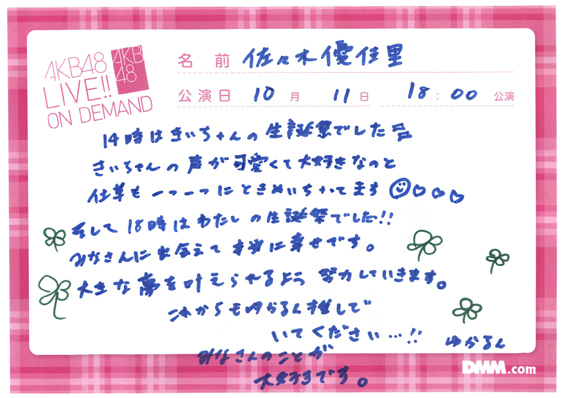 AKB48
LIVE!!
ON DEMAND
AKB
48
名 前 佐々木優佳里
公演日 10 月 11 日 18:00 公演
14時はきぃちゃんの生誕祭でした
きぃちゃんの声が可愛くて大好きなのと
仕草も一つ一つにときめいちゃてます
そして18時はわたしの生誕祭でした!!
みなさんに出会えて本当に幸せです。
大きな夢を叶えられるよう 努力していきます。
これからもゆかるん推しで
いてください…!!
みなさんのことが
大好きです。
ゆかるん
DMM.com